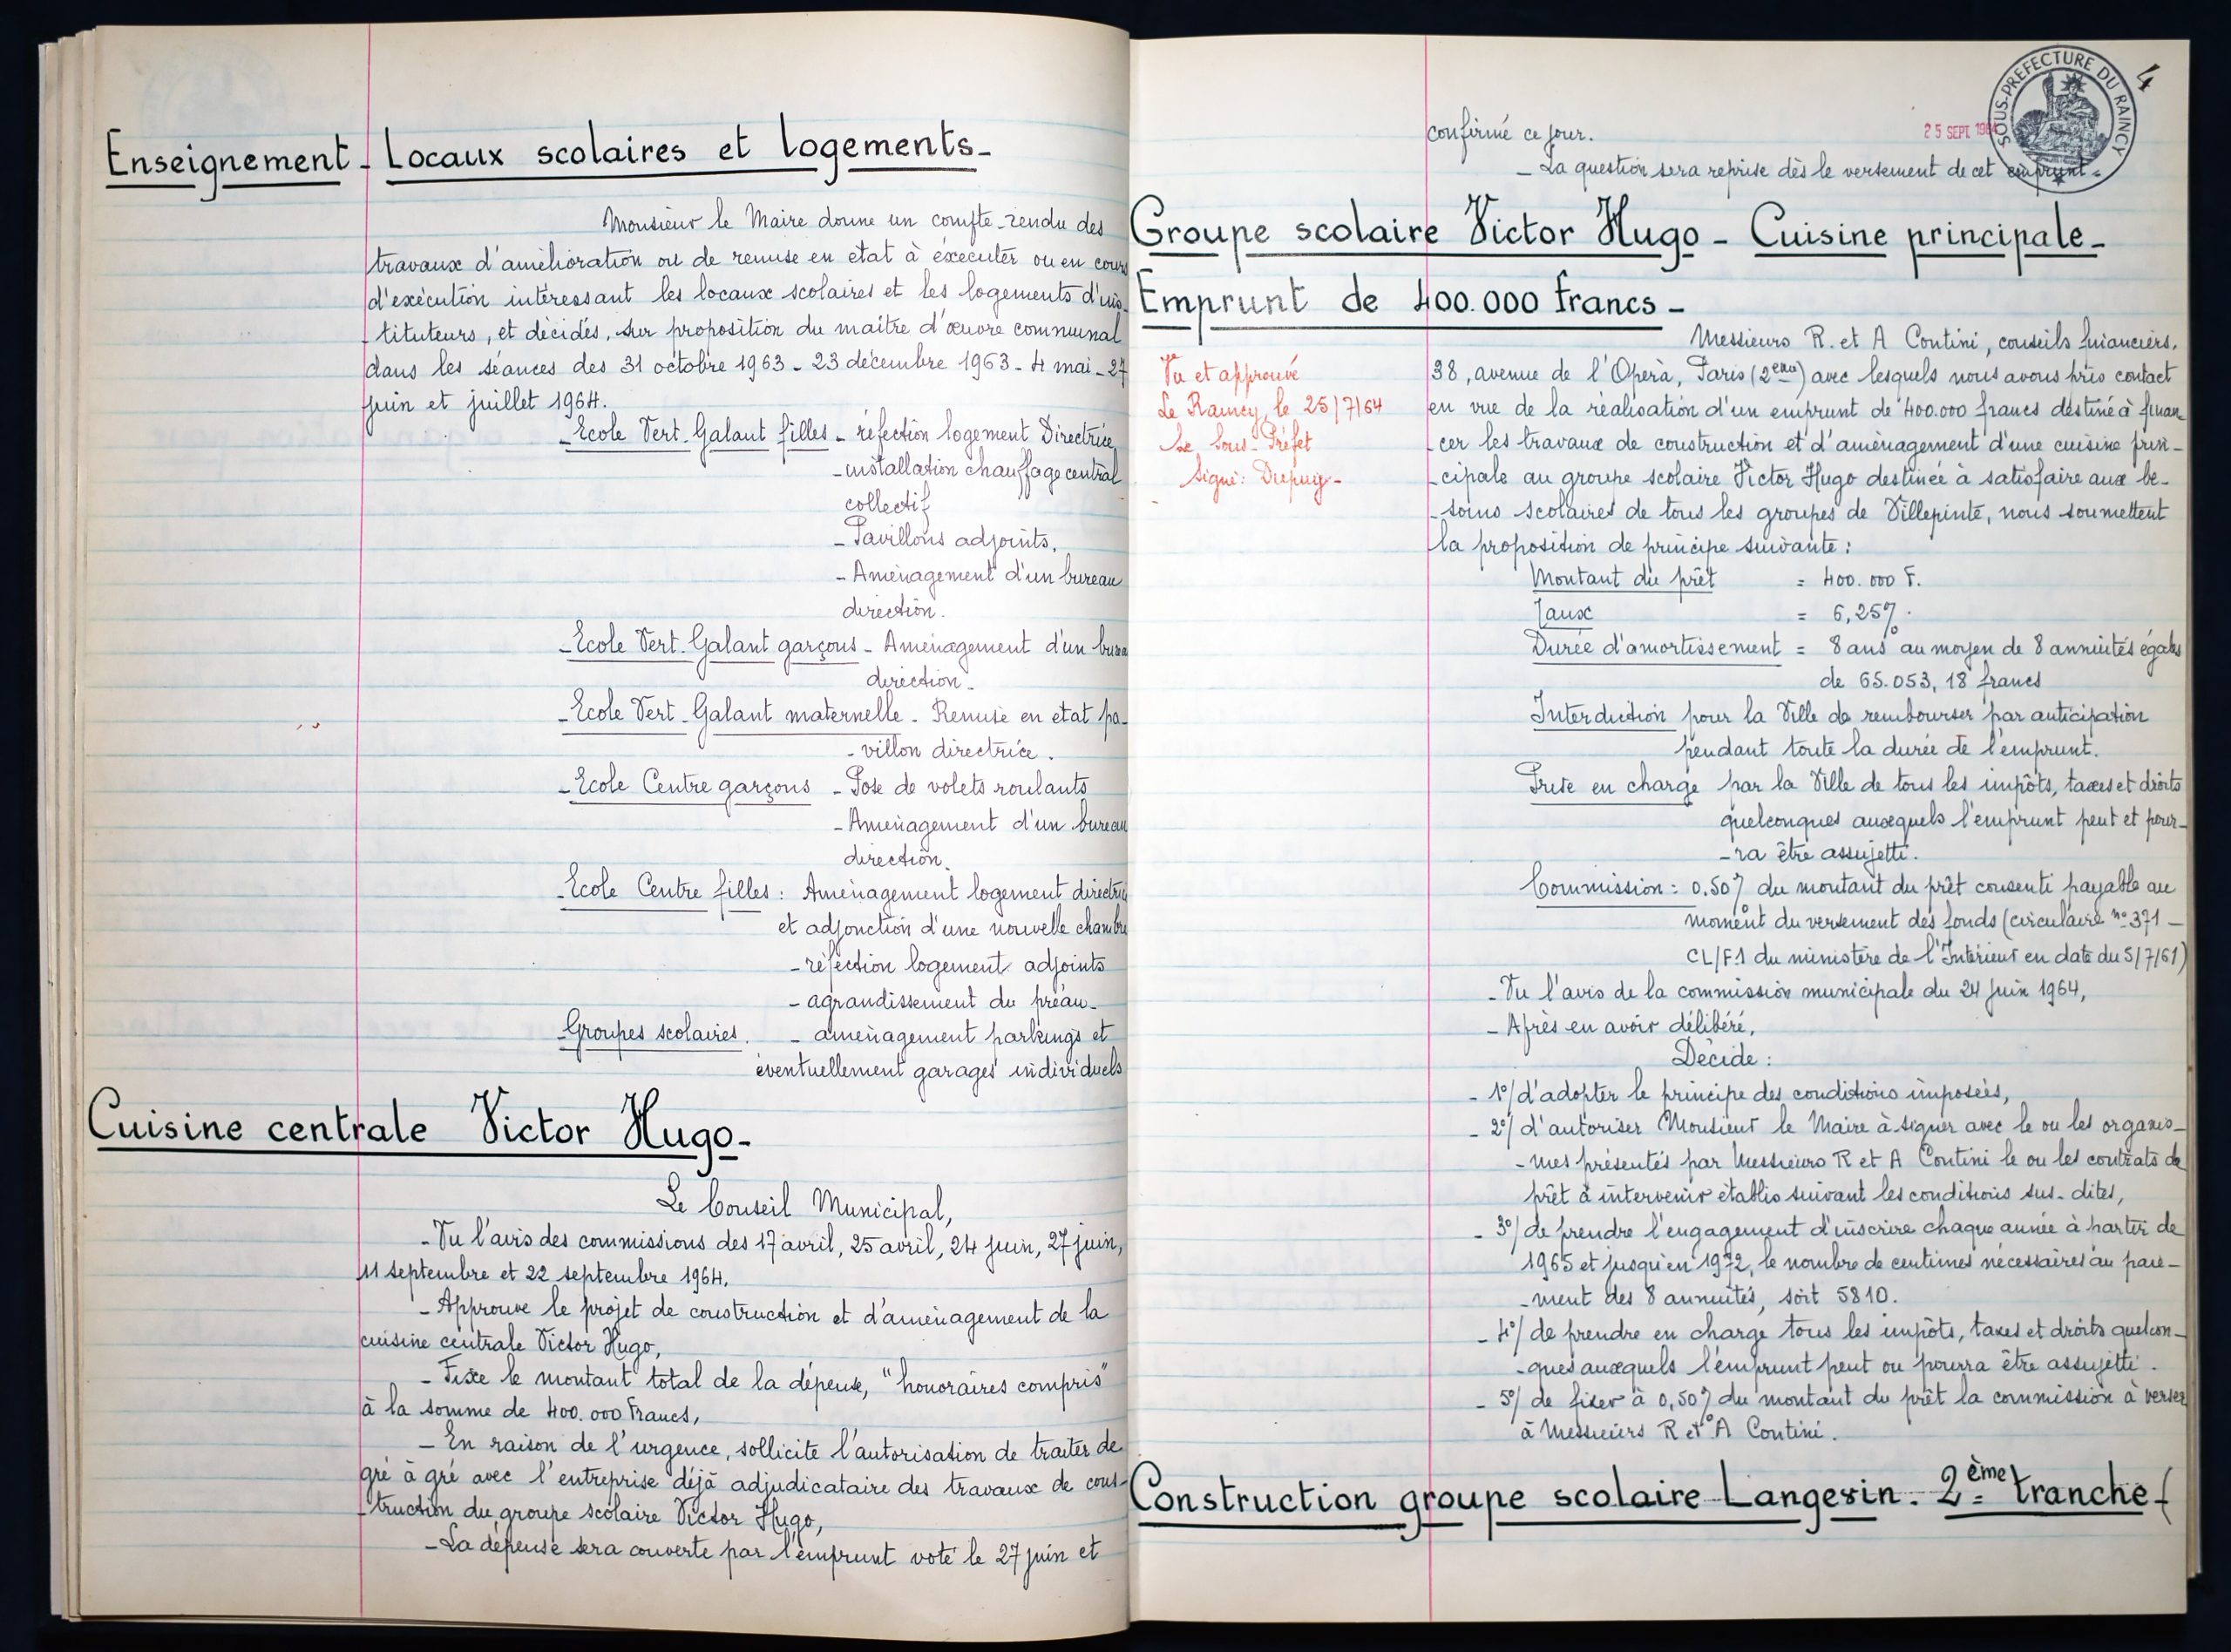 Enseignement - Locaux scolaires et logements -
Monsieur le Maire donne un compte-rendu des
travaux d'amélioration ou de remise en état à éxecuter ou en cours
d'exécution intéressant les locaux scolaires et les logements d'ins-
-tituteurs, et décidés, sur proposition du maître d'œuvre communal
dans les séances des 31 octobre 1963 - 23 décembre 1963 - 4 mai - 27
juin et juillet 1964.
- Ecole Vert-Galant filles - réfection logement Directrice
- installation chauffage central
collectif
- Pavillons adjoints,
- Aménagement d'un bureau
direction.
- Ecole Vert-Galant garçons - Aménagement d'un bureau
direction -
- Ecole Vert-Galant maternelle - Remise en état pa-
-villon directrice.
- Ecole Centre garçons - Pose de volets roulants
- Aménagement d'un bureau
direction.
- Ecole Centre filles : Aménagement logement directrice
et adjonction d'une nouvelle chambre
- réfection logement adjoints
- agrandissement du préau -
- Groupes scolaires. - aménagement parkings et
éventuellement garages individuels
Cuisine centrale Victor Hugo -
Le Conseil Municipal,
- Vu l'avis des commissions des 17 avril, 25 avril, 24 juin, 27 juin,
11 septembre et 22 septembre 1964.
- Approuve le projet de construction et d'aménagement de la
cuisine centrale Victor Hugo,
- Fixe le montant total de la dépense, "honoraires compris"
à la somme de 400.000 Francs,
- En raison de l'urgence, sollicite l'autorisation de traiter de
gré à gré avec l'entreprise déjà adjudicataire des travaux de cons-
-truction du groupe scolaire Victor Hugo,
- La dépense sera couverte par l'emprunt voté le 27 juin et
4
SOUS-PREFECTURE DU RAINCY
25 SEPT. 1964
confirmé ce jour.
- La question sera reprise dès le versement de cet emprunt -
Groupe scolaire Victor Hugo - Cuisine principale -
Emprunt de 400.000 francs -
Vu et approuvé
Le Raincy, le 25/7/64
Le Sous-Préfet
Signé: Dupuy -
Messieurs R. et A Contini, conseils financiers,
38, avenue de l'Opéra, Paris (2ème) avec lesquels nous avons pris contact
en vue de la réalisation d'un emprunt de 400.000 francs destiné à finan
-cer les travaux de construction et d'aménagement d'une cuisine prin-
-cipale au groupe scolaire Victor Hugo destinée à satisfaire aux be-
-soins scolaires de tous les groupes de Villepinte, nous soumettent
la proposition de principe suivante :
Montant du prêt = 400.000 F.
Taux = 6,25%.
Durée d'amortissement = 8 ans au moyen de 8 annuités égales
de 65.053,18 francs
Interdiction pour la Ville de rembourser par anticipation
pendant toute la durée de l'emprunt.
Prise en charge par la Ville de tous les impôts, taxes et droits
quelconques auxquels l'emprunt peut et pour-
-ra être assujetti.
Commission : 0.50% du montant du prêt consenti payable au
moment du versement des fonds (circulaire n° 371 -
CL/F1 du ministère de l'Intérieur en date du 5/7/61)
- Vu l'avis de la commission municipale du 24 juin 1964,
- Après en avoir délibéré,
Décide :
- 1°/ d'adopter le principe des conditions imposées,
- 2°/ d'autoriser Monsieur le Maire à signer avec le ou les organis-
-mes présentés par Messieurs R et A Contini le ou les contrats de
prêt à intervenir établis suivant les conditions sus-dites,
- 3°/ de prendre l'engagement d'inscrire chaque année à partir de
1965 et jusqu'en 1972, le nombre de centimes nécessaires au paie-
-ment des 8 annuités, soit 5810.
- 4°/ de prendre en charge tous les impôts, taxes et droits quelcon-
-ques auxquels l'emprunt peut ou pourra être assujetti.
- 5°/ de fixer à 0,50% du montant du prêt la commission à verser
à Messieurs R et A Contini.
Construction groupe scolaire Langevin - 2ème tranche -